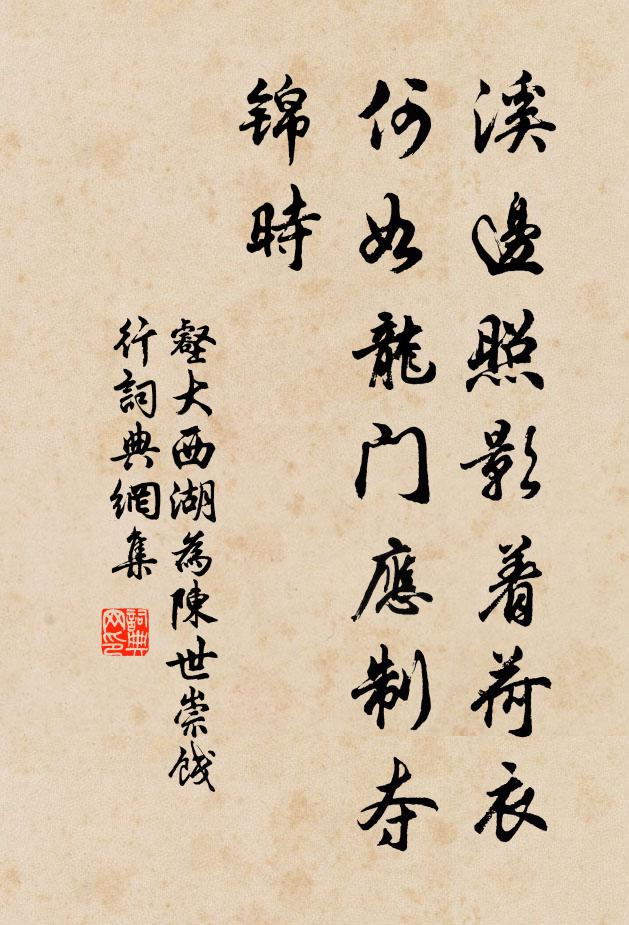 溪邊照影着荷衣
何如龍門應制夺
锦時
壑大西湖為陳世崇餞
行詞典網集
詞典
网印